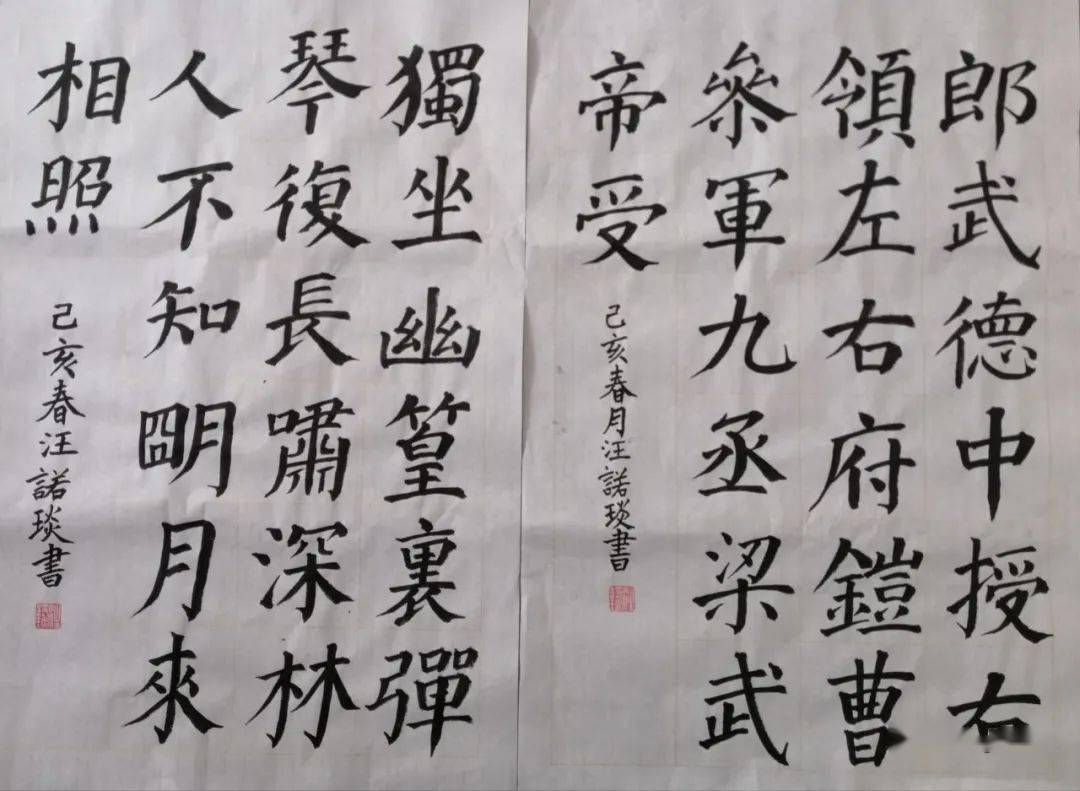 郎武德中授右
領左右府鎧曹
叅軍九丞梁武
帝受
己亥春月汪諾琰書
獨坐幽篁裏彈
琴復長嘯深林
人不知朙月來
相照
己亥春汪諾琰書